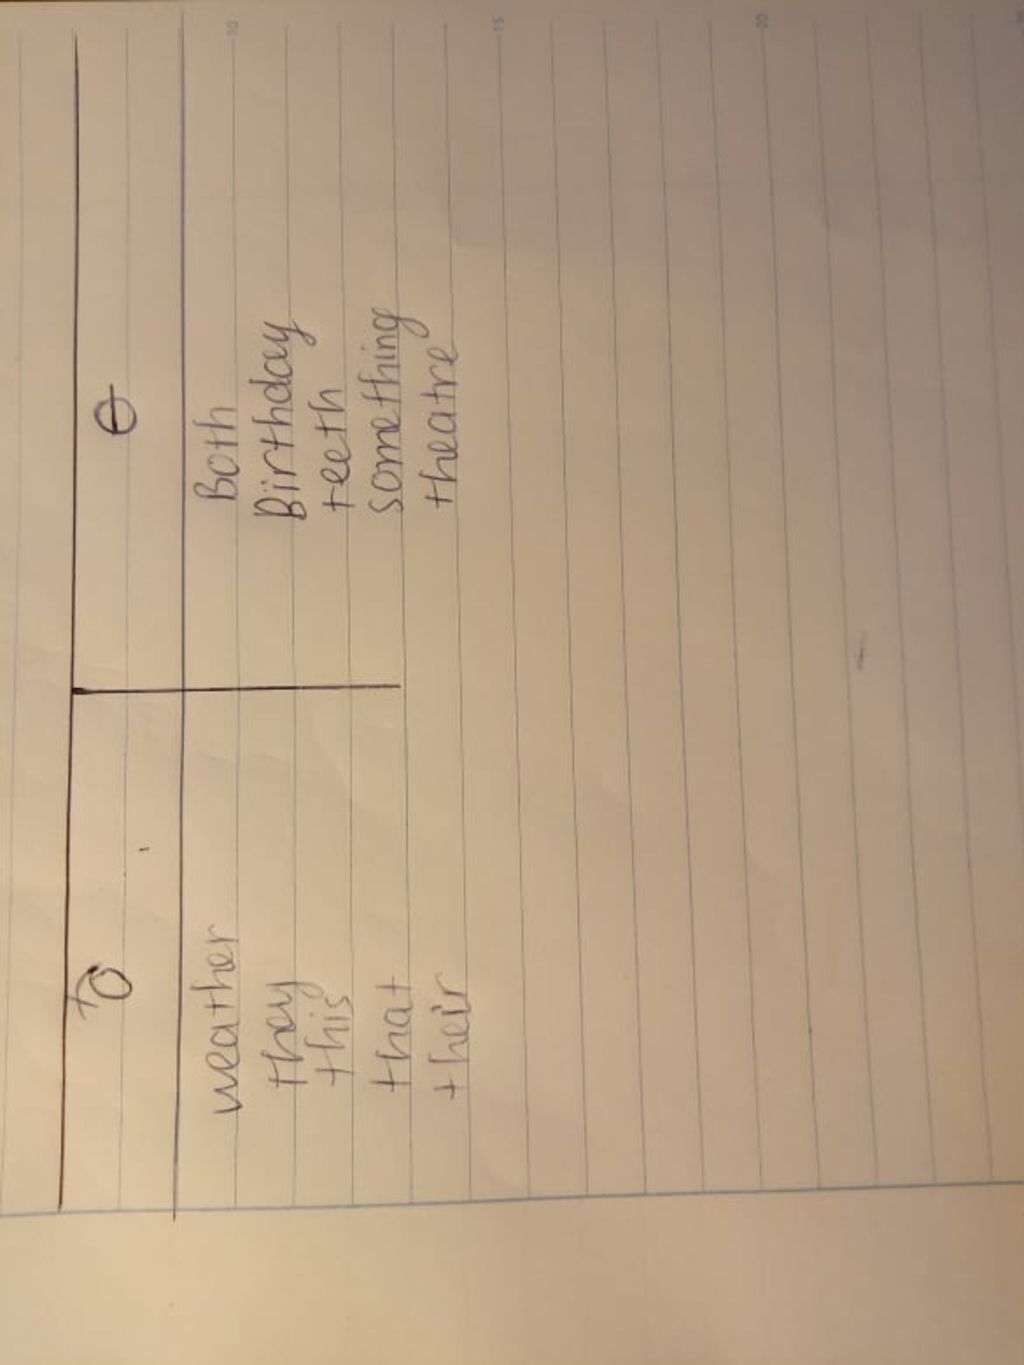 ð θ
weather Both
they Birthday
this teeth
that something
their theatre
10 15 20